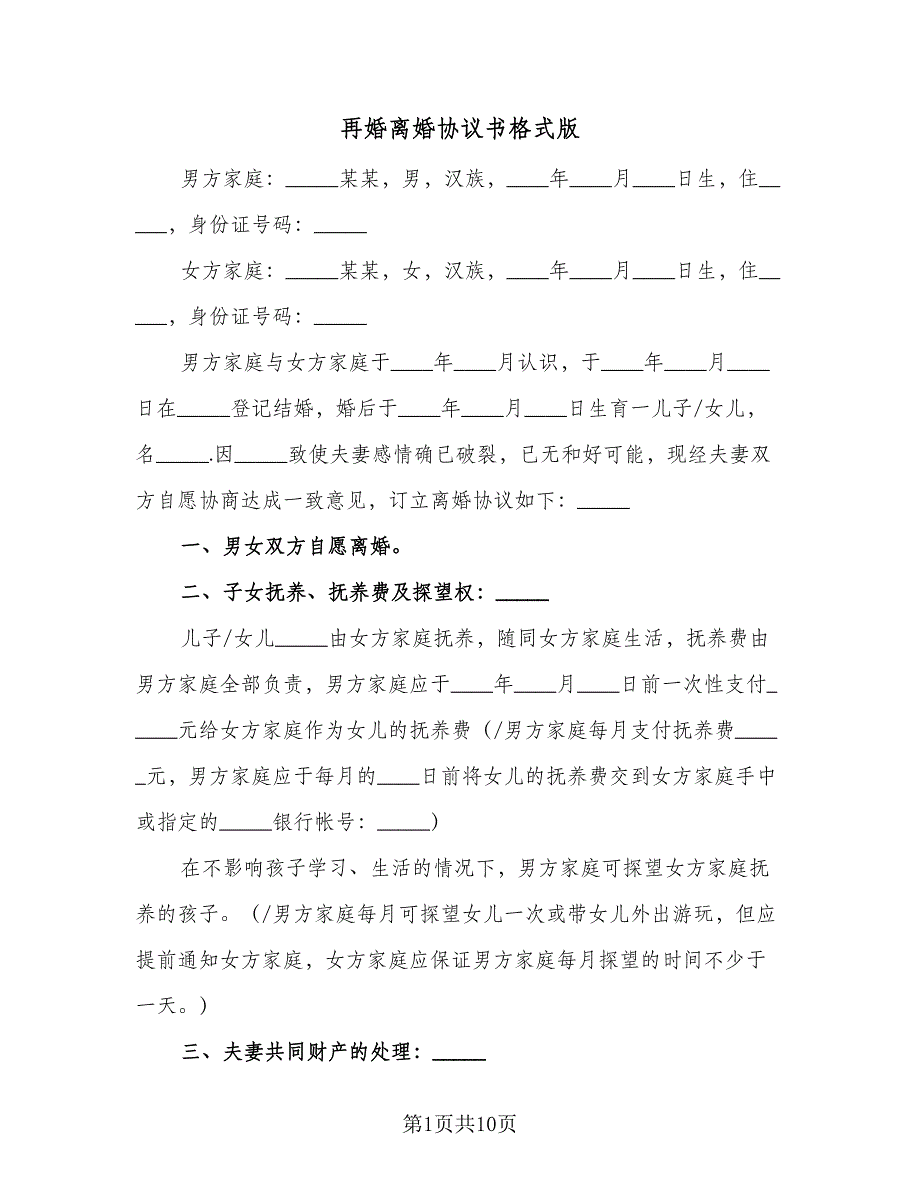 再婚离婚协议书格式版
男方家庭：_____某某，男，汉族，____年____月____日生，住__
___，身份证号码：_____
女方家庭：_____某某，女，汉族，____年____月____日生，住__
___，身份证号码：_____
男方家庭与女方家庭于____年____月认识，于____年____月____
日在_____登记结婚，婚后于____年____月____日生育一儿子/女儿，
名_____.因_____致使夫妻感情确已破裂，已无和好可能，现经夫妻双
方自愿协商达成一致意见，订立离婚协议如下：_____
一、男女双方自愿离婚。
二、子女抚养、抚养费及探望权：_____
儿子/女儿_____由女方家庭抚养，随同女方家庭生活，抚养费由
男方家庭全部负责，男方家庭应于____年____月____日前一次性支付_
____元给女方家庭作为女儿的抚养费（/男方家庭每月支付抚养费____
_元，男方家庭应于每月的____日前将女儿的抚养费交到女方家庭手中
或指定的_____银行帐号：_____）
在不影响孩子学习、生活的情况下，男方家庭可探望女方家庭抚
养的孩子。（/男方家庭每月可探望女儿一次或带女儿外出游玩，但应
提前通知女方家庭，女方家庭应保证男方家庭每月探望的时间不少于
一天。）
三、夫妻共同财产的处理：_____
第1页共10页